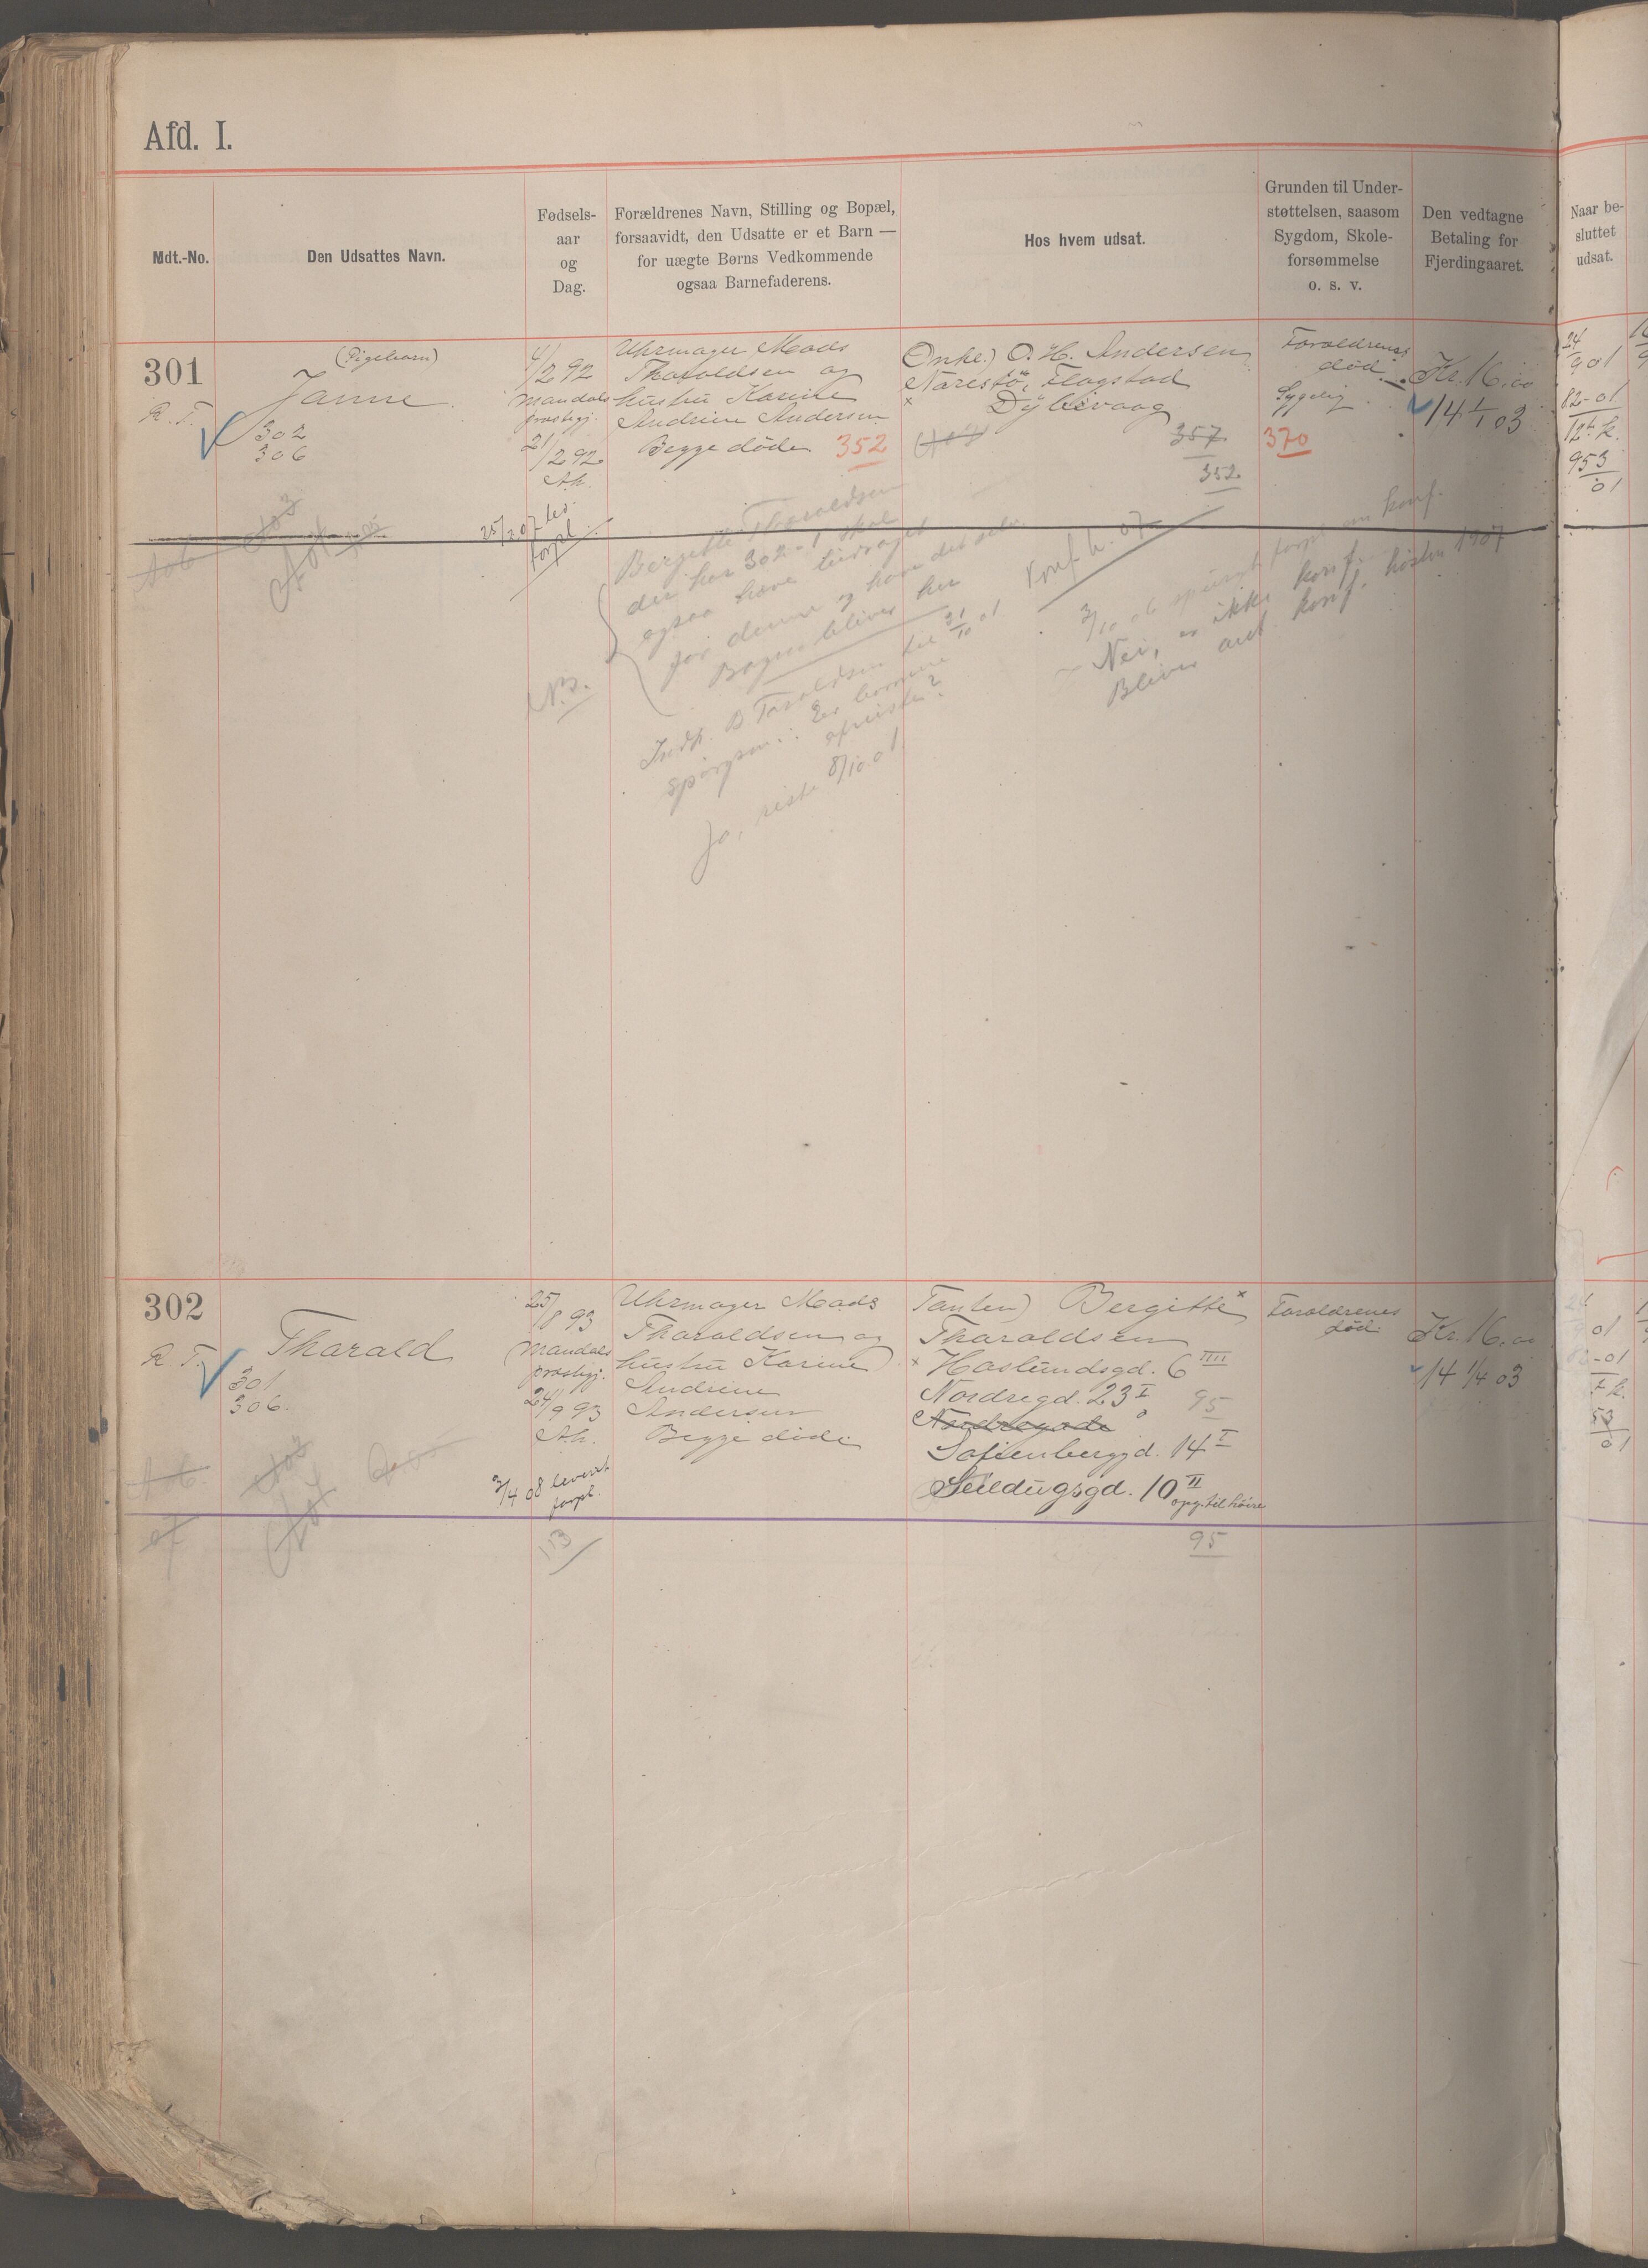 Afd. I.
Mdt.-No.
Den Udsattes Navn.
Fødsels-
aar
og
Dag.
Forældrenes Navn, Stilling og Bopæl,
forsaavidt, den Udsatte er et Barn —
for uægte Børns Vedkommende
ogsaa Barnefaderens.
Hos hvem udsat.
Grunden til Under-
støttelsen, saasom
Sygdom, Skole-
forsømmelse
o. s. v.
Den vedtagne
Betaling for
Fjerdingaaret.
Naar be-
sluttet
udsat.
301
R. T.
(Pigebarn)
Janne
302
306
4/2 92
Mandals
præstegj.
21/2 92
25/2 07 lev.
forpl.
Uhrmager Mads
Tharaldsen og
hustru Karine
Andrine Andersen
Begge døde 352
Onkel) O. H. Andersen
Narestö, Flagstad
Dÿbvaag
357
352
Forældrenes
død.
Sygelig
370
Kr. 16.00
14 1/1 03
24/9 01
82-01
12 k.
953
01
Bergitte Tharaldsen
der har 302 skal
ogsaa have bidraget
for denne og have det selv
Bogen bliver her
NB.
Indk. B. Taraldsen til 31/10 01
spörgsm.: Er barnene
afreiste?
Ja, reiste 8/10 01
Konf. h. 07
3/10 06 spurgt forpl. om konf.
Nei, er ikke konf.
Bliver ant. konf. hösten 1907
302
R. T.
Tharald
301
306.
25/8 93
Mandals
præstegj.
24/9 93
3/4 08 leveret
forpl.
113
Uhrmager Mads
Tharaldsen og
hustru Karine
Andrine
Andersen
Begge døde
Tanten) Bergitte
Tharaldsen
Haslundsgd. 6 IIII
Nordregd. 23 I 95
Nordregade
Sofienberggd. 14 I
Seildugsgd. 10 II
opg. til höire
95
Forældrenes
død.
Kr. 16.00
14 1/4 03
01
-01
7 k.
53
01